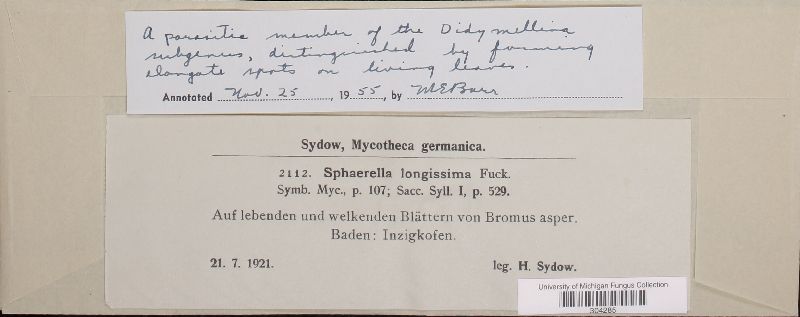 A parasitic member of the Didymellina
subgenus, distinguished by forming
elongate spots on living leaves.
Annotated Nov. 25, 1955, by MEBarr
Sydow, Mycotheca germanica.
2112. Sphaerella longissima Fuck.
Symb. Myc., p. 107; Sacc. Syll. I, p. 529.
Auf lebenden und welkenden Blättern von Bromus asper.
Baden: Inzigkofen.
21. 7. 1921. leg. H. Sydow.
University of Michigan Fungus Collection
304285